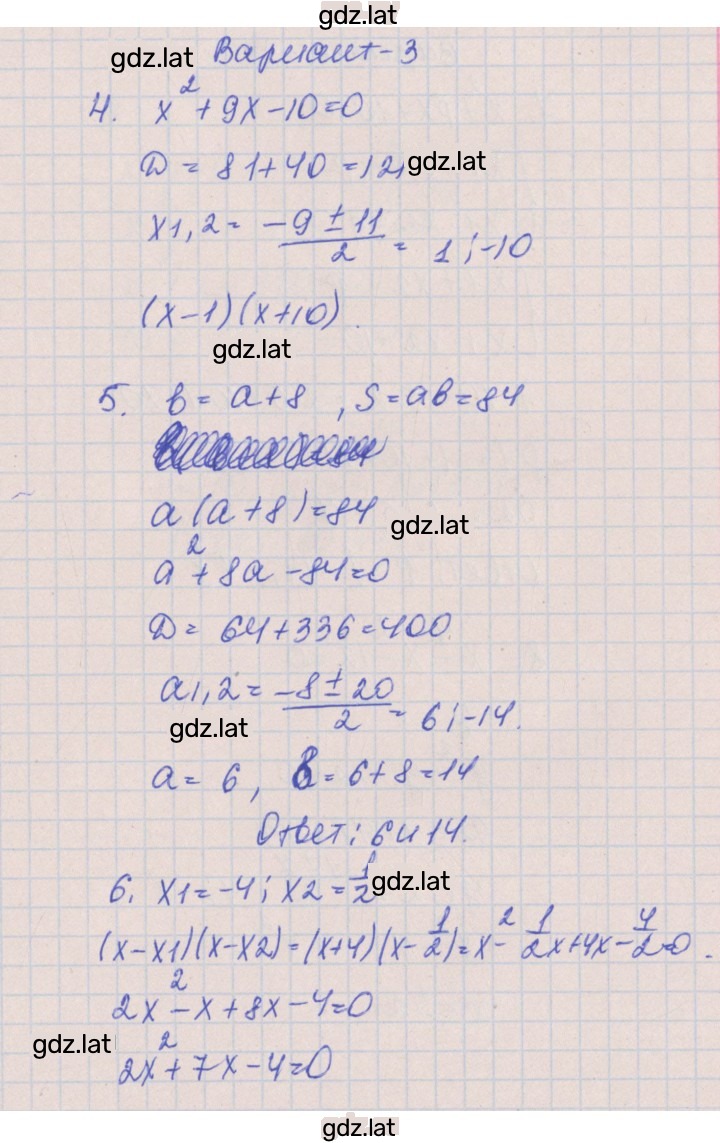 gdz.lat
gdz.lat Вариант-3
4. x² + 9x - 10 = 0
D = 81 + 40 = 121 gdz.lat
x1,2 = (-9 ± 11)/2 = 1 ; -10
(x-1)(x+10)
gdz.lat
5. b = a + 8 , S = ab = 84
a(a+8) = 84
gdz.lat
a² + 8a - 84 = 0
D = 64 + 336 = 400
a1,2 = (-8 ± 20)/2 = 6 ; -14.
gdz.lat
a = 6 , b = 6 + 8 = 14
Ответ: 6 и 14.
6. x1 = -4 ; x2 = 1/2 gdz.lat
(x-x1)(x-x2) = (x+4)(x - 1/2) = x² - 1/2x + 4x - 4/2 = 0.
2x² - x + 8x - 4 = 0
gdz.lat
2x² + 7x - 4 = 0
gdz.lat